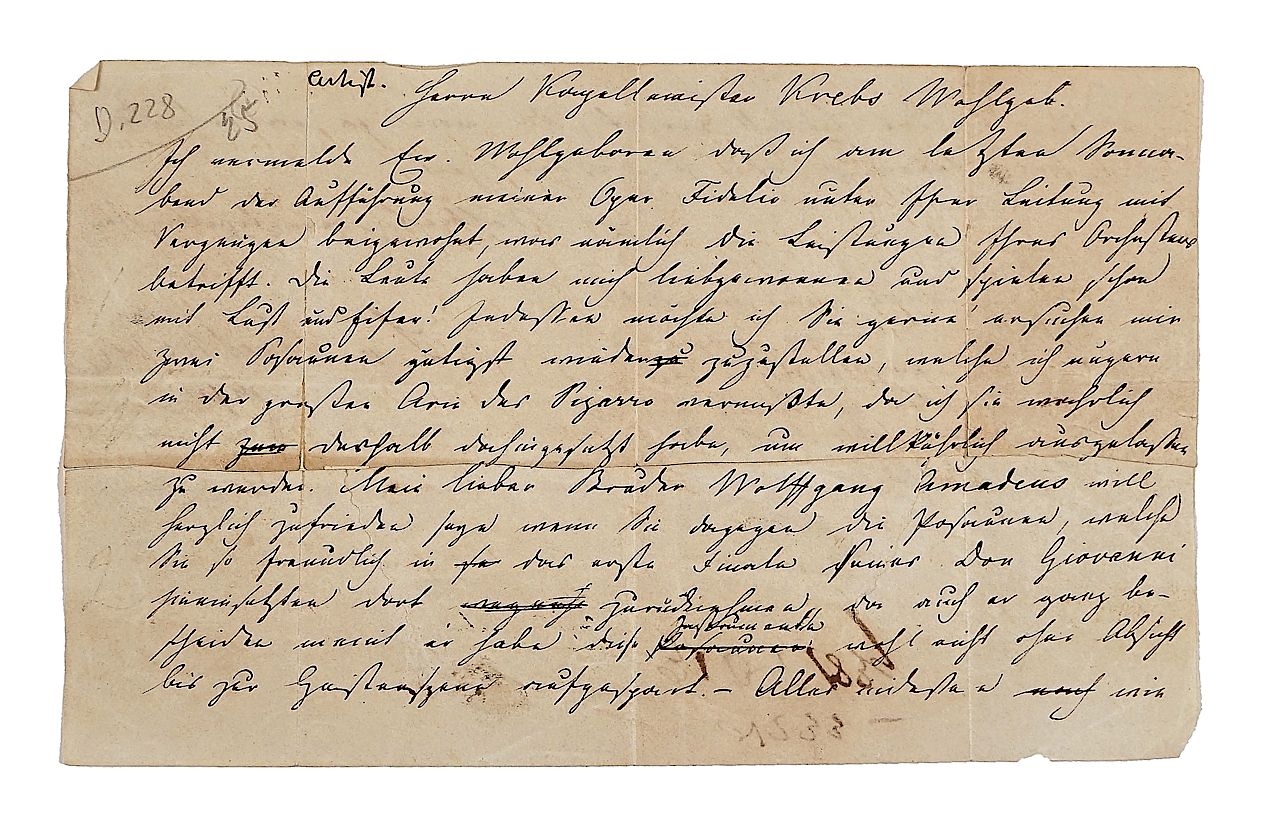 D. 228
25
Artist. Herrn Kapellmeister Krebs Wohlgeb.
Ich vermelde Ew. Wohlgeboren daß ich am letzten Sonna-
bend der Aufführung meiner Oper Fidelio unter Ihrer Leitung mit
Vergnügen beigewohnt, was nämlich die Leistungen Ihres Orchesters
betrifft. Die Leute haben mich liebgewonnen und spielen schon
mit Lust und Eifer! Indessen möchte ich Sie gerne ersuchen mir
zwei Posaunen gütigst wieder zu zuzustellen, welche ich ungern
in der großen Arie des Pizarro vermißte, da ich sie wahrlich
nicht zum deshalb dahingesetzt habe, um willkührlich ausgelassen
zu werden. Mein lieber Bruder Wolffgang Amadeus will
herzlich zufrieden seyn wenn Sie dagegen die Posaunen, welche
Sie so freundlich in das erste Finale seines Don Giovanni
hineinsetzten dort zurücknehmen, da auch er ganz be-
scheiden meint er habe diese Posaunen Instrumente wohl nicht ohne Absicht
bis zur Geisterszene aufgespart. – Alles indessen noch wie